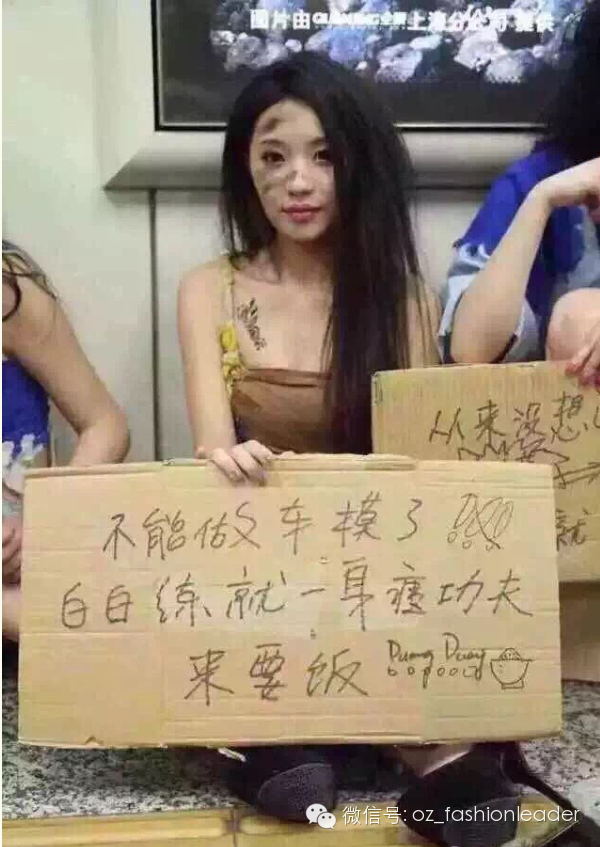 图片由 上海分公司 提供
从来没想
就
不能做车模了!!!
白白练就一身瘦功夫
来要饭 Duang Duang
微信号: oz_fashionleader